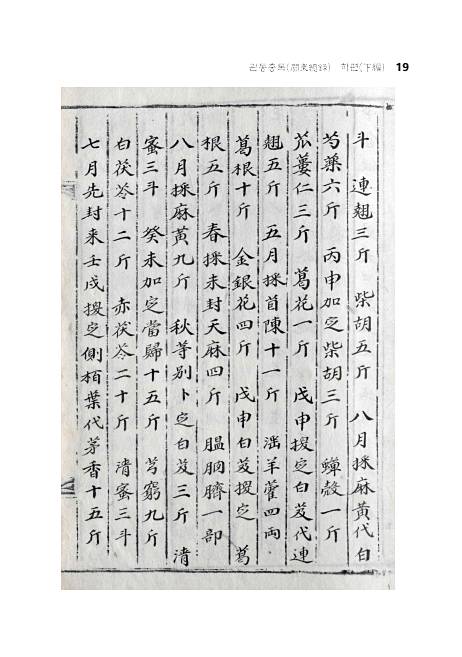 관동총록(關東總錄) 하편(下編) 19
斗 連翹三斤 柴胡五斤 八月採麻黃代白
芍藥六斤 丙申加定柴胡三斤 蟬殼一斤
苽蔞仁三斤 葛花一斤 戊申援定白芨代連
翹五斤 五月採首陳十一斤 羊藿四兩
葛根十斤 金銀花四斤 戊申白芨援定 葛
根五斤 春採未封天麻四斤 膃肭臍一部
八月採麻黃九斤 秋等別卜定白芨三斤 清
蜜三斗 癸未加定當歸十五斤 芎窮九斤
白茯苓十二斤 赤茯苓二十斤 清蜜三斗
七月先封来壬戌援定側栢葉代茅香十五斤